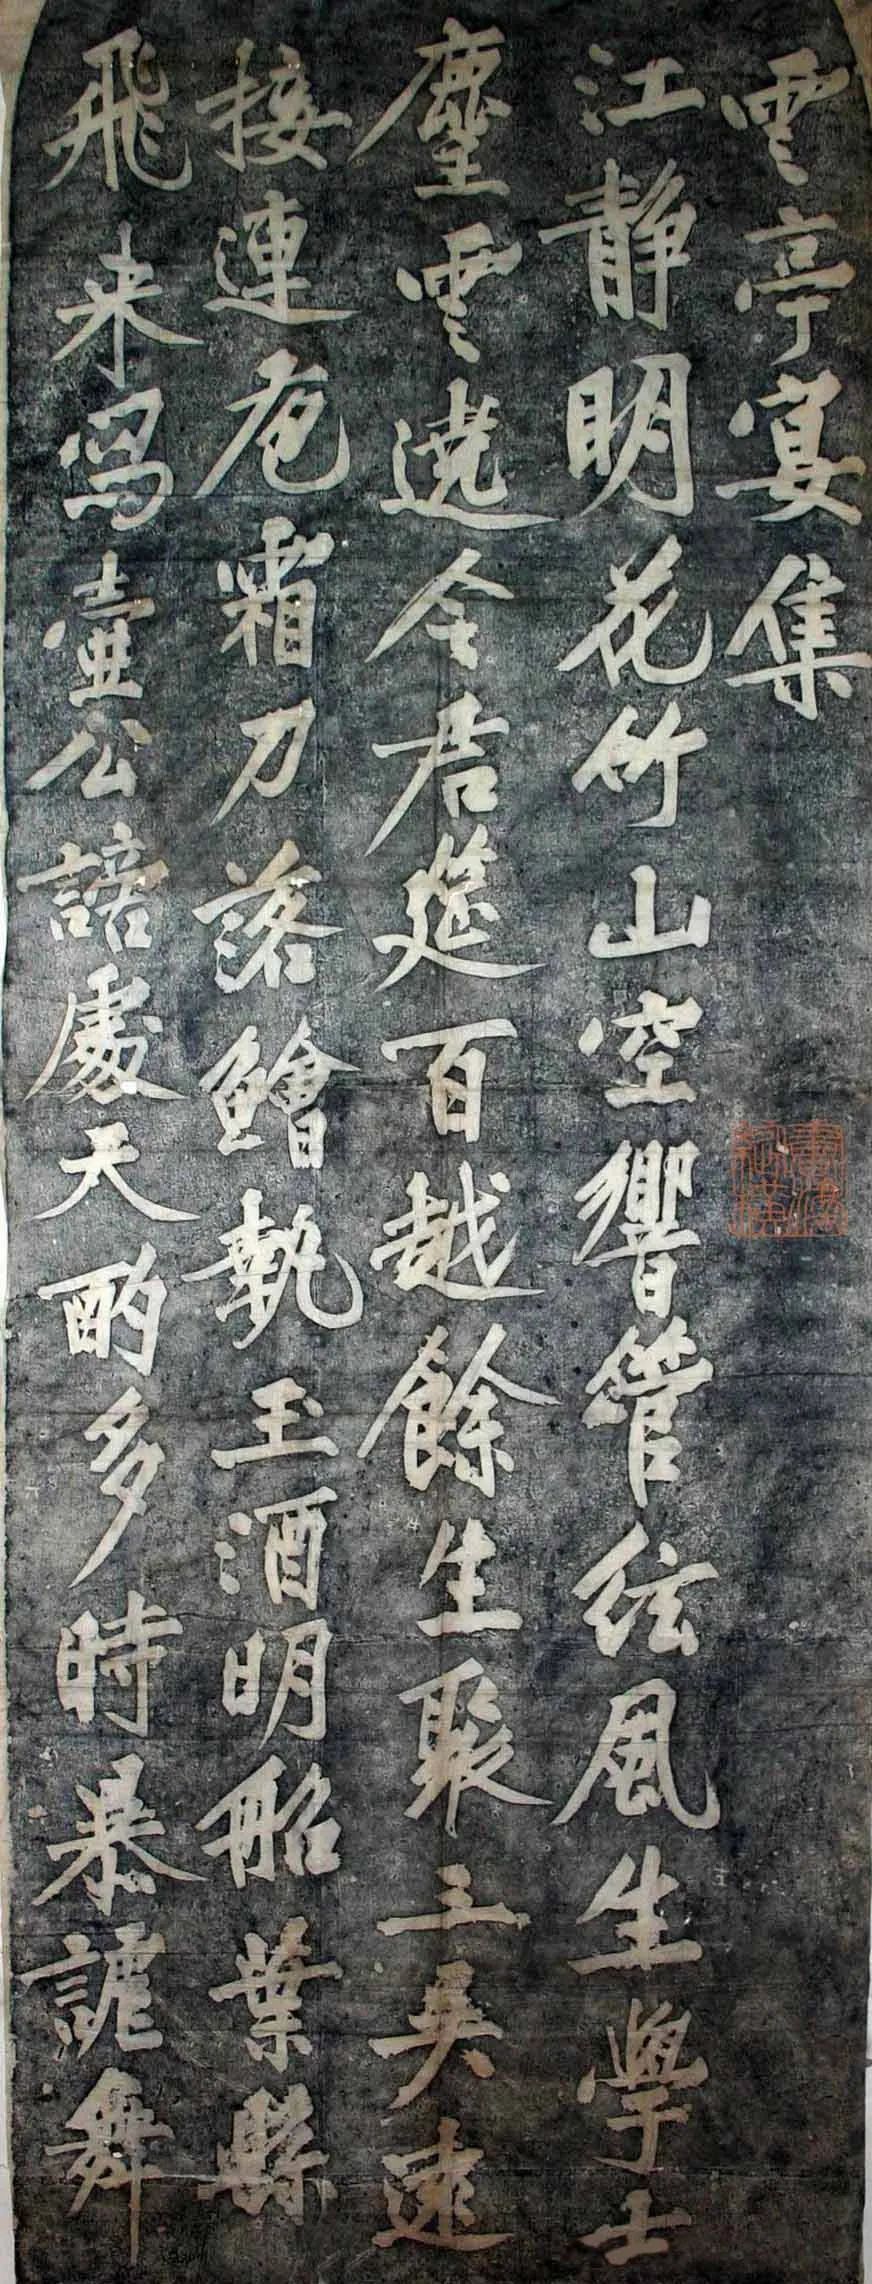 雲亭宴集
江靜明花竹山空響管絃風生學士
麈雲遶令君筵百越餘生聚三吳遠
接連庖霜刀落鱠執玉酒明船葉縣
飛來舄壺公謫處天酌多時暴謔舞